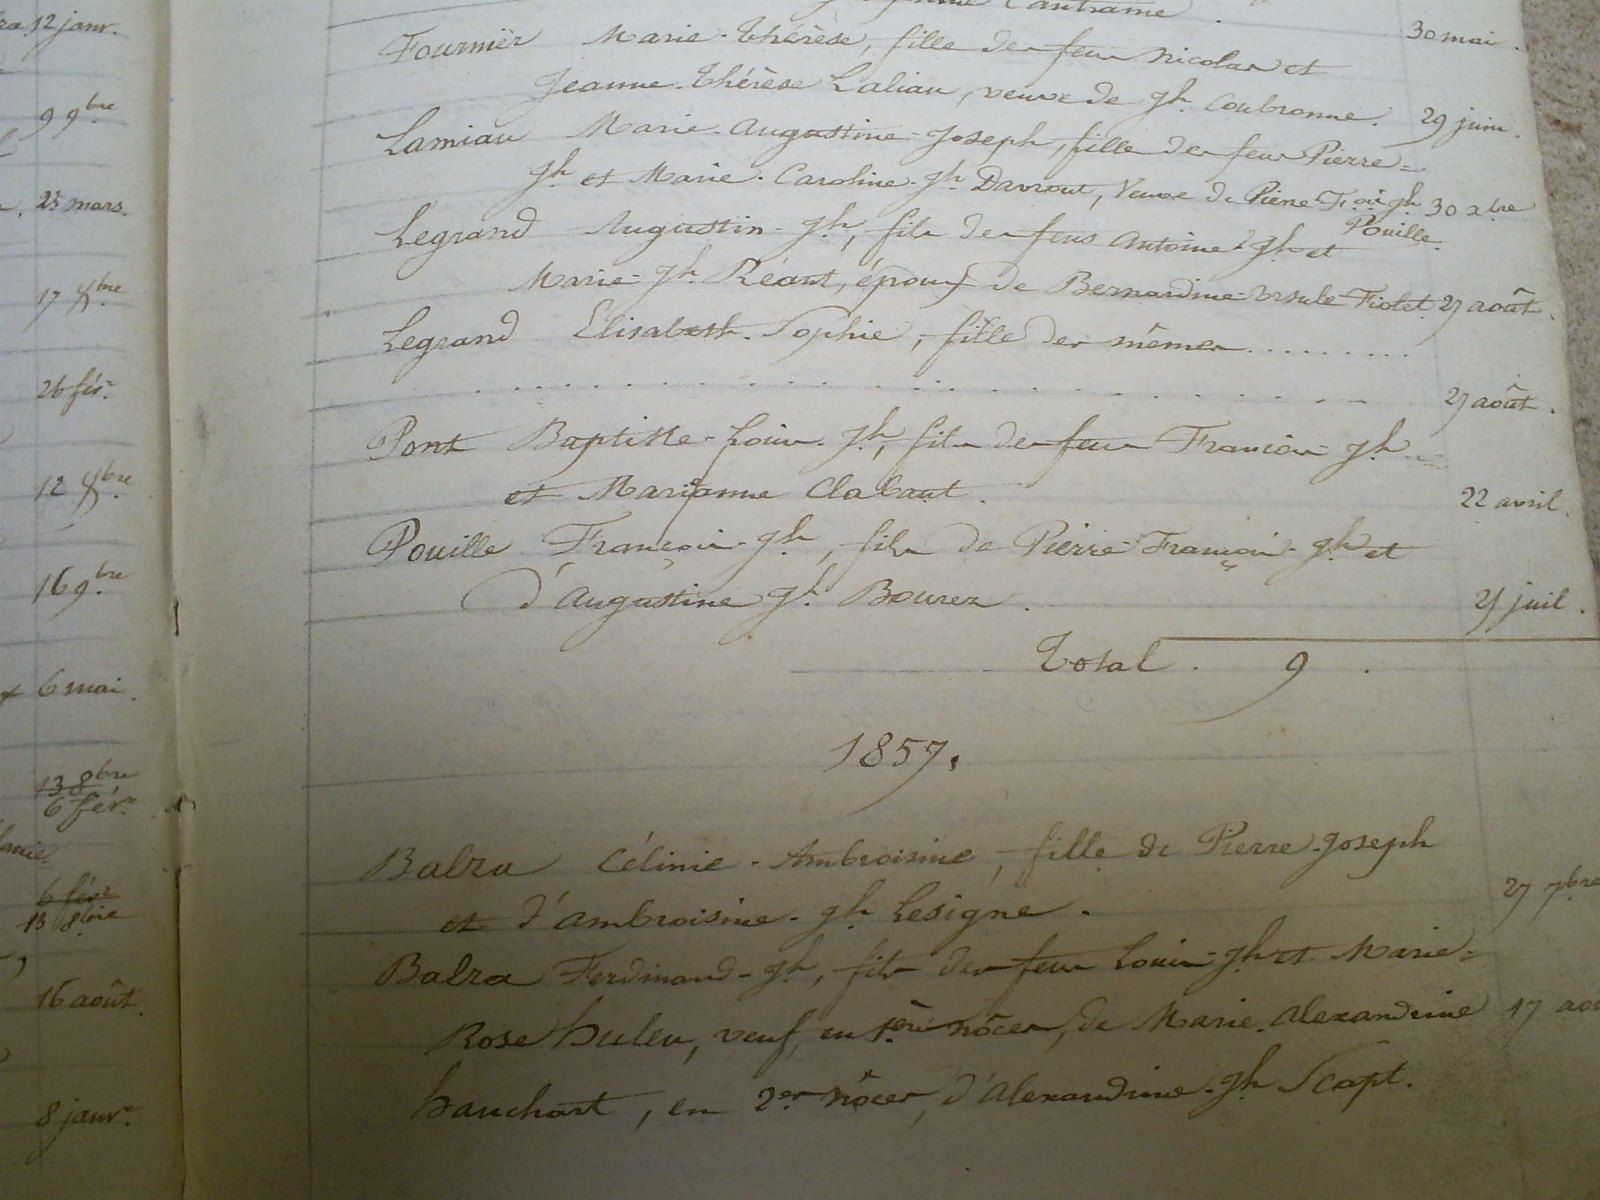 12 janv.
9 9bre
23 mars.
17 8bre
26 fév.
12 8bre
16 9bre
6 mai.
13 8bre
6 févr.
6 févr
13 8bre
16 août.
8 janvr.
30 mai.
Fournier Marie-Thérèse, fille des feus Nicolas et
Jeanne-Thérèse Laliau, veuve de Jh. Coubronne. 29 juin.
Lamiau Marie-Augustine-Joseph, fille des feus Pierre=
Jh et Marie-Caroline-Jh Davrout, Veuve de Pierre-Fois Jh 30 xbre
Pouille.
Legrand Augustin-Jh, fils des feus Antoine-Jh et
Marie-Jh Réant, époux de Bernardine-Ursule Fiolet 27 août.
Legrand Elisabeth-Sophie, fille des mêmes .........
27 août.
Pont Baptiste-Louis-Jh, fils des feus François-Jh
et Marianne Clabaut. 22 avril.
Pouille François-Jh, fils de Pierre-François-Jh et
d'Augustine Jh. Bourez. 25 juil.
Total. 9.
1857.
Balza Célinie-Ambroisine, fille de Pierre-Joseph
et d'Ambroisine-Jh Lesigne. 27 7bre
Balza Ferdinand-Jh, fils des feus Louis-Jh et Marie=
Rose Huleu, veuf, en 1ères nôces, de Marie-Alexandrine 17 aoû
Hauchart, en 2es nôces, d'Alexandrine-Jh Scapt.